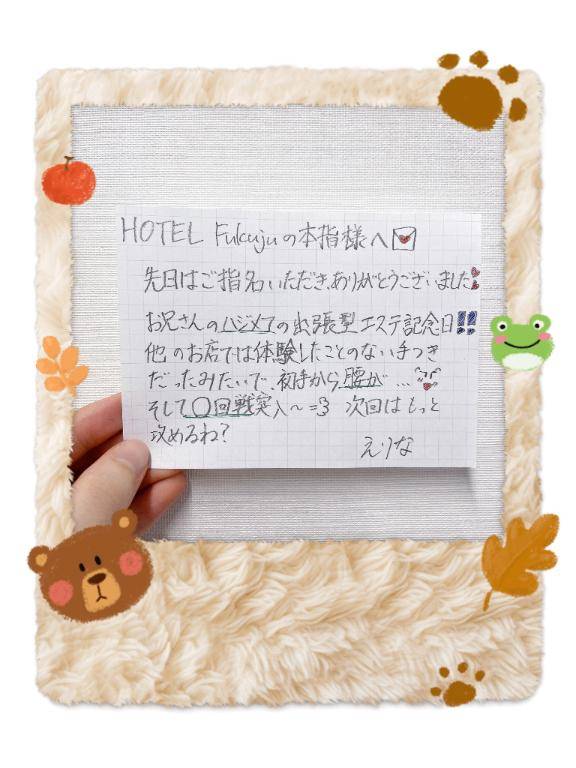 HOTEL Fukujuの本指様へ
先日はご指名いただきありがとうございました
お兄さんのハジメテの出張型エステ記念日!!
他のお店では体験したことのない手つき
だったみたいで、初手から腰が…
そして〇回戦突入～=3 次回はもっと
攻めるね?
えりな